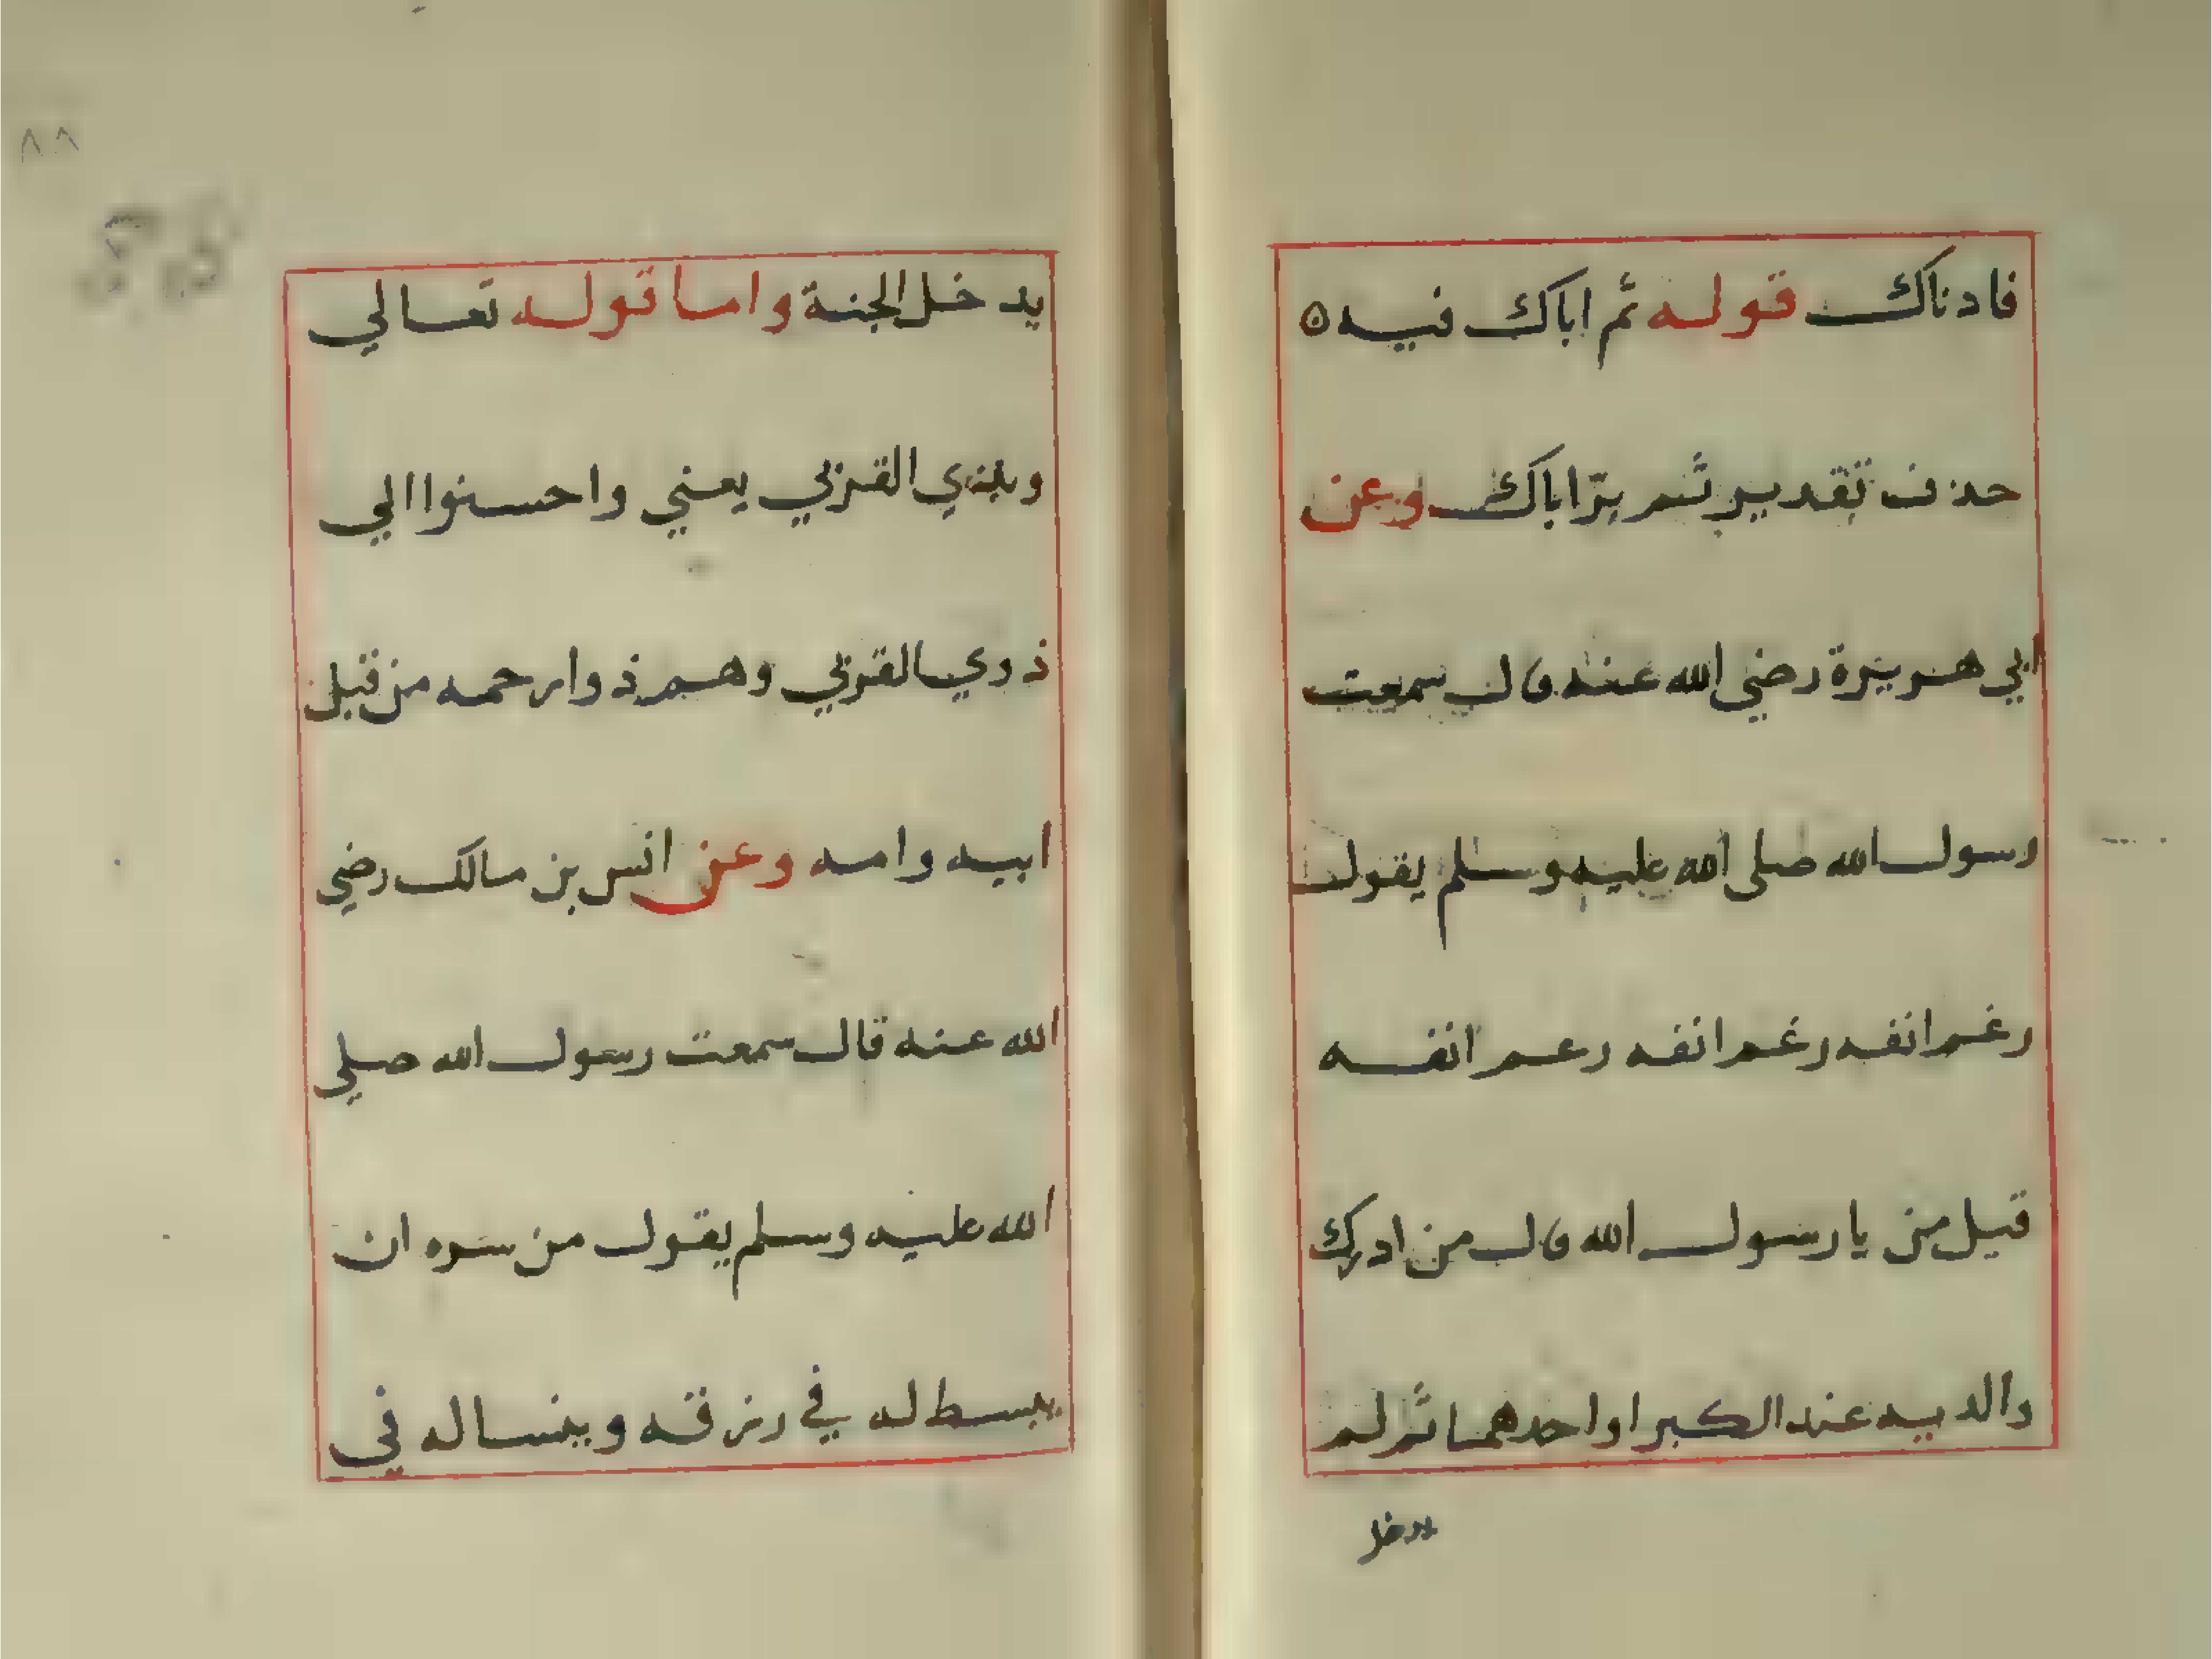 فادناك قوله ثم اباك فيه ه
حذف تقدير ثم برّ اباك وعن
ابي هريرة رضي الله عنه قال سمعت
رسول الله صلى الله عليه وسلم يقول
رغم انفه رغم انفه رعم انفه
قيل من يا رسول الله قال من ادرك
والديه عند الكبر او احدهما ثم لم
يدخل
٨٨
يدخل الجنة واما قوله تعالي
وبذي القربي يعني واحسنوا الي
ذوي القربي وهم ذوا رحمه من قبل
ابيه وامه وعن انس بن مالك رضي
الله عنه قال سمعت رسول الله صلي
الله عليه وسلم يقول من سره ان
يبسط له في رزقه وينسا له في